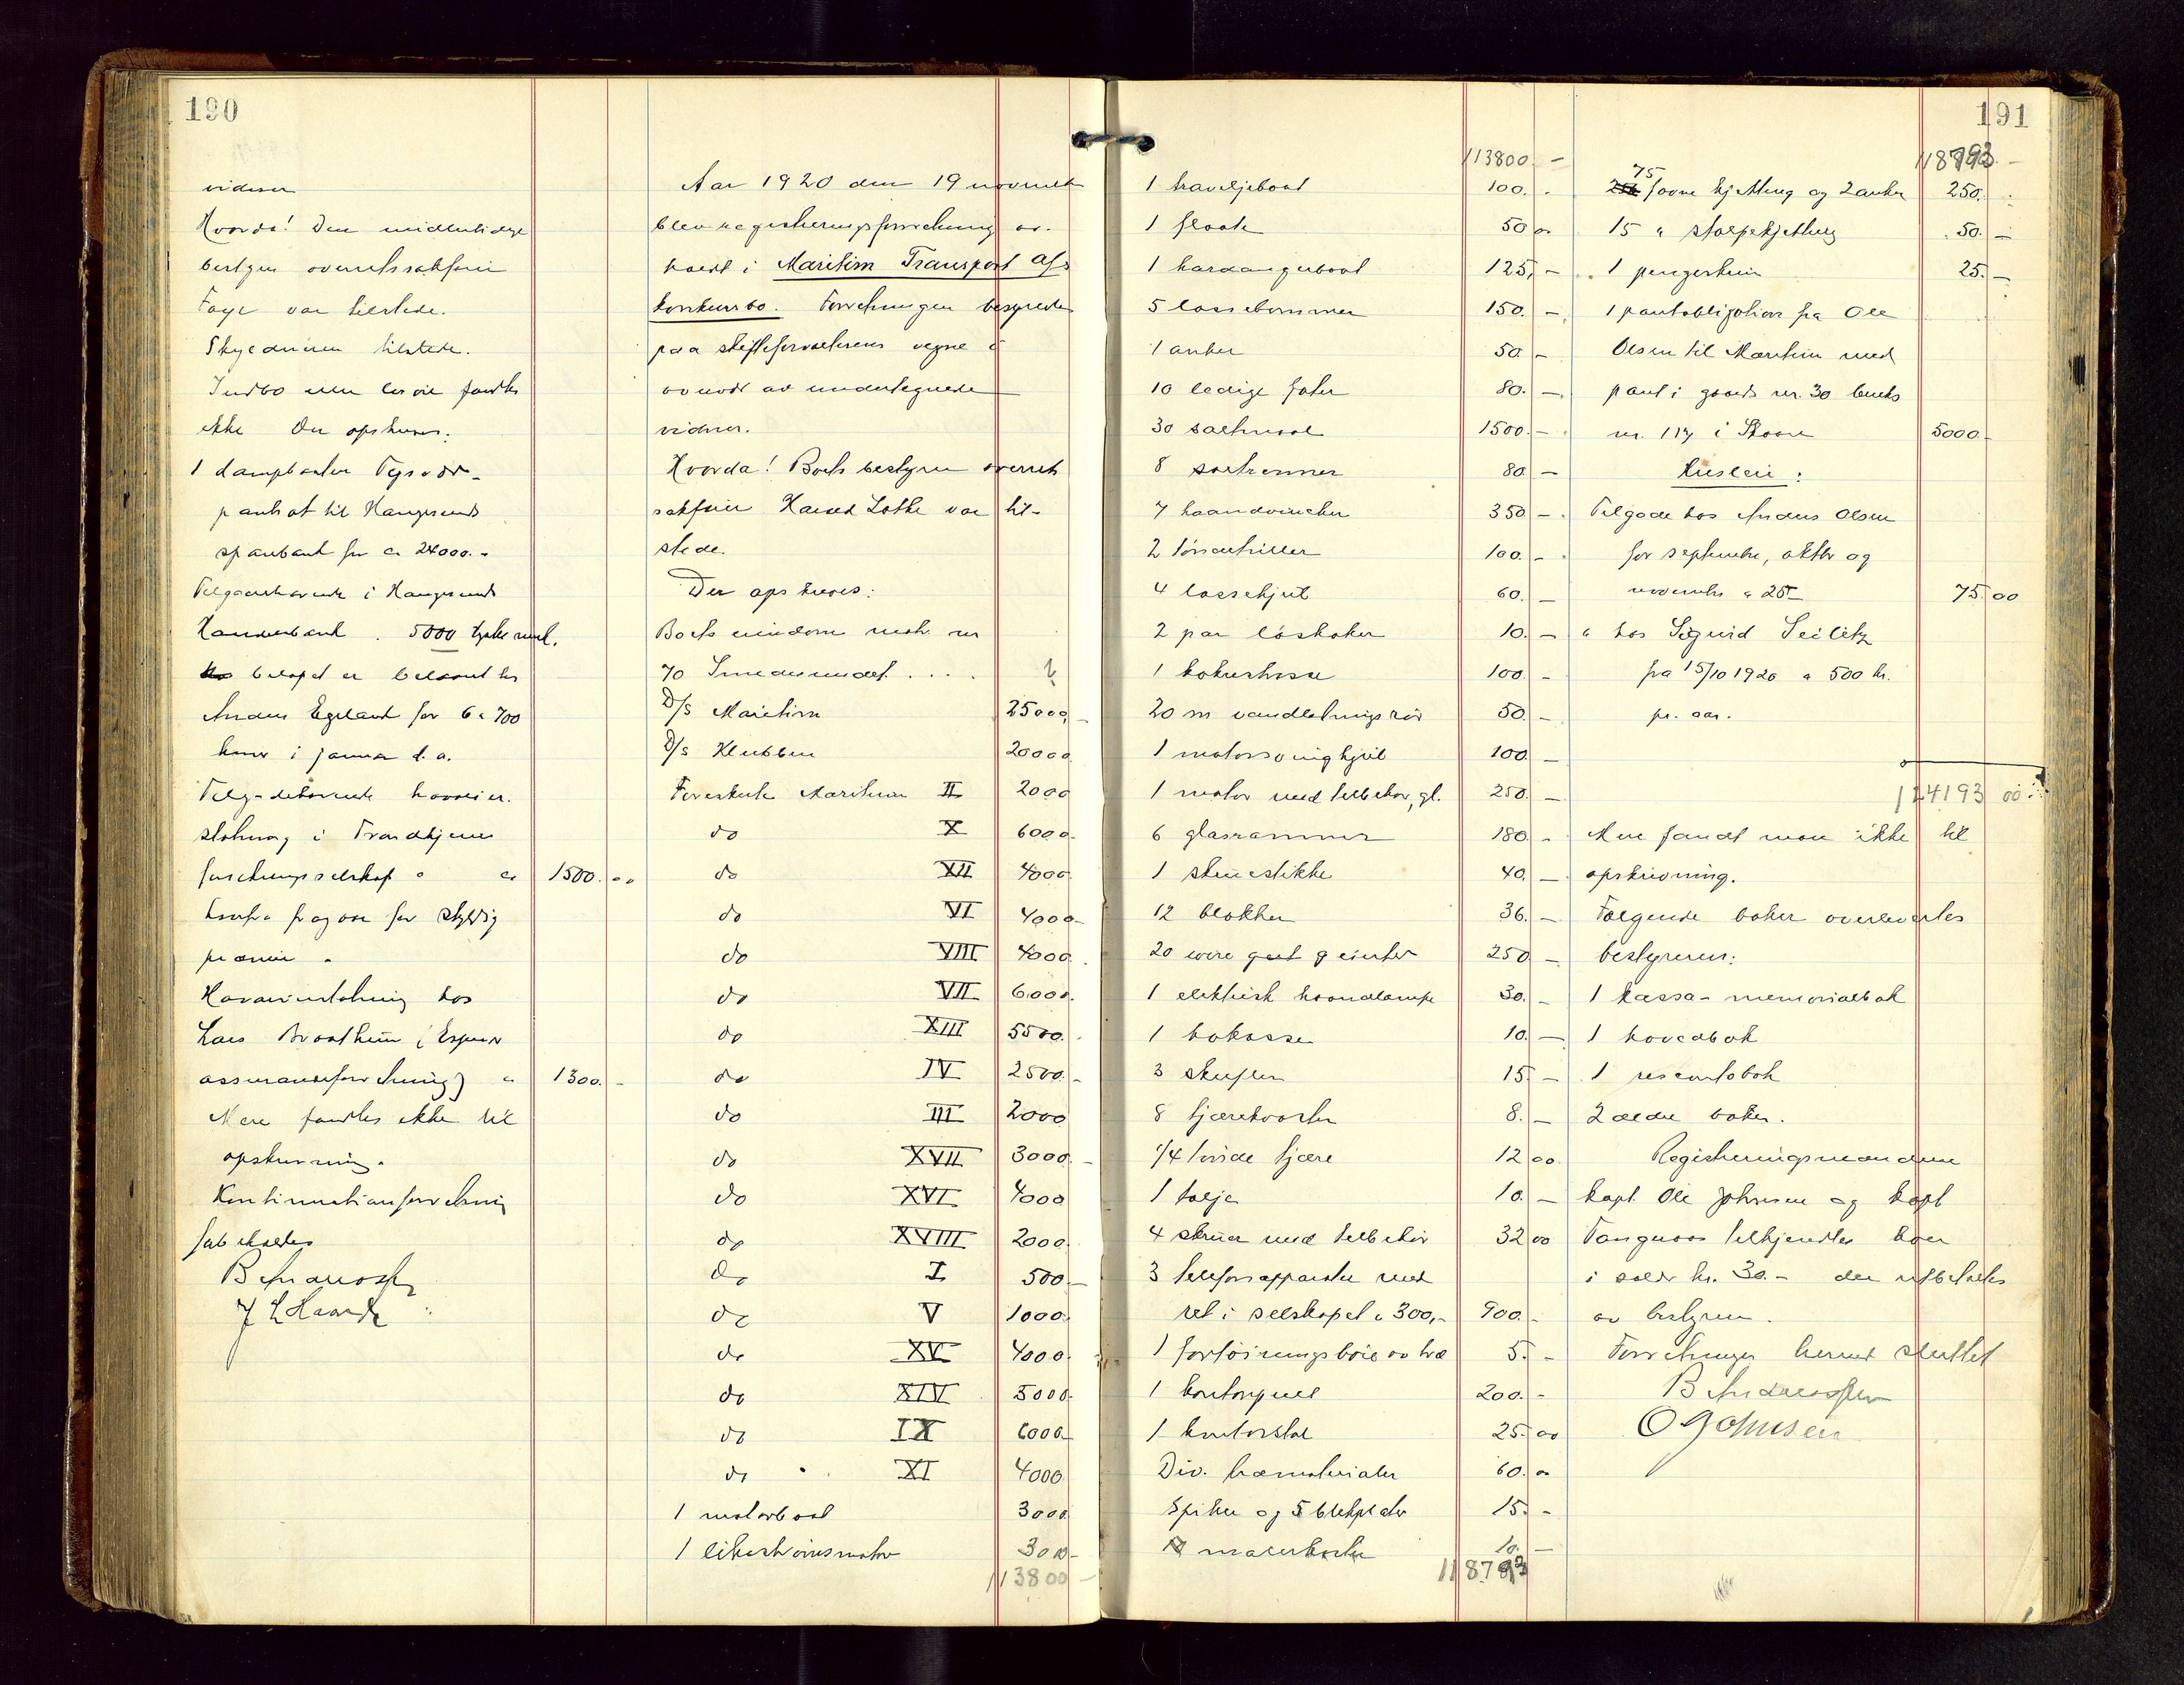 190
vidner
Hvorda! Den midlertidige
bestyrer overretssakfører
Fage var tilstede.
Skyldneren tilstede.
Indbo eller løsøre fandtes
ikke Der opskreves:
1 dampbarkas
pantsat til Haugesunds
sparebank for ca 24000.-
Tilgodehavende i Haugesunds
Handelsbank . 5000 tyske mk.
beløpet er belaant hos
Anders Egeland for 6 a 700
kroner i januar d.a.
stolning i Trondhjems
forsikringsselskap ca 1500.00
herfra fragaar for skyldig
præmie
hos
Lars Braatheim (Espevær
assuranceforretning) " 1300.-
Mere fandtes ikke til
opskrivning.
Kontinuationsforretning
forbeholdes
B Andreassen
J L Haande
Aar 1920 den 19 november
blev registreringsforretning av-
holdt i Maritim Transport A/S
konkursbo. Forretningen besyredes
paa skifteforvalterens vegne
av undertegnede
vidner.
Hvorda! Boets bestyrer overrets
sakfører Harald Lothe var til-
stede.
Der opskreves:
Boets eiendom matr nr
70 Smedesundet . . . .
D/S Maritim 25000,-
D/S Klubben 20000
Føreskute Maritim II 2000
do X 6000.
do XII 4000
do VI 4000-
do VIII 4000.
do VII 6.000.
do XIII 5500.
do IV 2500.-
do III 2000
do XVII 3000.-
do XVI 4000
do XVIII 2000.
do I 500.-
do V 1000.
do XV 4000.
do XIV 3000.
do IX 6000.
do XI 4000
1 motorbaat 3000
1 likestrømsmotor 300-
113800-
191
113800.-
1 snaveljebaat 100.-
1 flaate 50 00
1 hardangerbaat 125.-
5 lossebommer 150.-
1 anker 50.-
10 ledige fater 80.-
30 saltmaal 1500.-
8 saltrenner 80-
7 haandvincher 350-
2 tøndetriller 100.-
4 lossehjul 60.-
2 par løshaker 10.-
1 kokushosse 100.-
20 m vandledningsrør 50.-
1 motorsvinghjul 100.-
1 motor med tilbehør, gl. 250.-
6 glasrammer 180.-
1 skruestikke 40.-
12 blokker 36.-
20 250-
1 elektrisk haandlampe 30.-
1 kokasse 10.-
3 skufler 15.-
8 tjærekoster 8.-
1/4 tønde tjære 12 00
1 talje 10.-
4 skruer med tilbehør 32 00
3 telefonapparater med
ret i selskapet a 300,- 900.-
1 fortøiningsbøie av træ 5.-
1 kontorpult 200.-
1 kontorstol 25.00
Div. træmaterialer 60.00
Spiker og 5 blikplater 15.-
malerkoster 10.-
118793
118793.-
75 favne kjetting og 2 anker 250.
15 " stolpekjetting 50.-
1 pengeskrin 25.-
1 pantobligation fra Ole
Olsen til Maritim med
pant i gaards nr. 30 bruks
nr. 117 i Skaare 5000.-
Husleie:
Tilgode hos Anders Olsen
for september, oktbr og
november a 25- 75.00
" hos Sigurd Seilitz
fra 15/10 1920 a 500 kr.
pr. aar.
124193 00
Mere fandt man ikke til
opskrivning.
Følgende bøker overlevertes
bestyreren:
1 kassa-memorialbok
1 hovedbok
1 rescontobok
2 ældre bøker.
Registreringsmændene
kapt. Ole Johnsen og kapt
Vangnaas tilkjendtes hver
i salær kr. 30.- der utbetaltes
av bestyreren.
Forretningen hermed sluttet
B Andreassen
O Johnsen